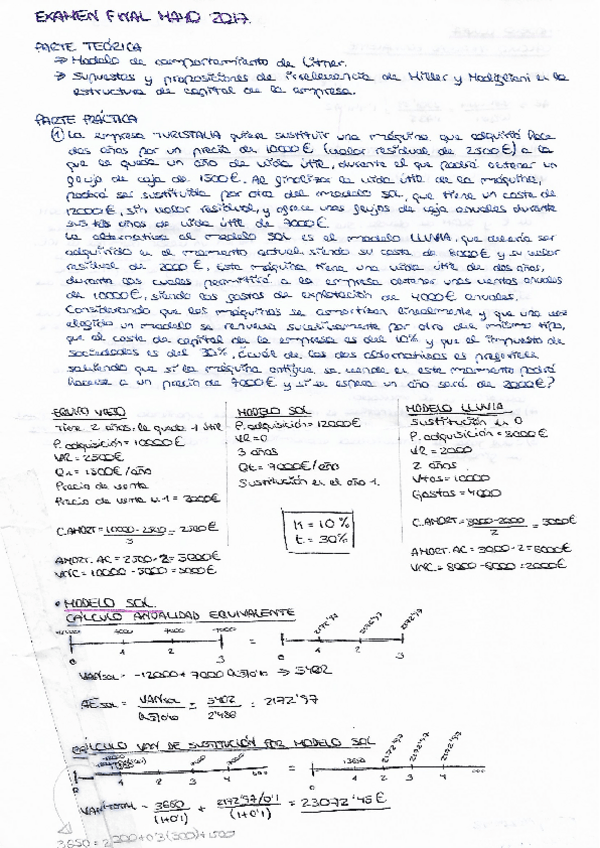 EXAMEN FINAL MAYO 2017.
PARTE TEÓRICA
→ Modelo de comportamiento de Litner.
→ Supuestos y proposiciones de irrelevancia de Miller y Modigliani en la
estructura de capital de la empresa.
PARTE PRÁCTICA
① La empresa TURISTALIA quiere sustituir una máquina que adquirió hace
dos años por un precio de 10000€ (valor residual de 2500€) a la
que le queda un año de vida útil, durante el que podrá obtener un
flujo de caja de 1500€. Al finalizar la vida útil de la máquina,
podrá ser sustituida por otra del modelo SOL, que tiene un coste de
12000€, sin valor residual, y ofrece unos flujos de caja anuales durante
sus tres años de vida útil de 7000€.
La alternativa al modelo SOL es el modelo LLUVIA, que debería ser
adquirido en el momento actual, siendo su coste de 8000€ y su valor
residual de 2000€, esta máquina tiene una vida útil de dos años,
durante los cuales permitirá a la empresa obtener unas ventas anuales
de 10000€, siendo los gastos de explotación de 4000€ anuales.
Considerando que las máquinas se amortizan linealmente y que una vez
elegido un modelo se renueva sucesivamente por otro del mismo tipo,
que el coste de capital de la empresa es del 10% y que el impuesto de
sociedades es del 30%, ¿cuál de las dos alternativas es preferible
sabiendo que si la máquina antigua se vende en este momento podrá
hacerse a un precio de 7000€ y si se espera un año será de 2000€?
EQUIPO VIEJO
Tiene 2 años: le queda 1 útil
P. adquisición = 10000€
VR = 2500€
Q1 = 1500€/año
Precio de venta
Precio de venta n.1 = 2000€
C.AMORT = 10000-2500 / 3 = 2500€
AMORT. AC = 2500·2 = 5000€
VNC = 10000-5000 = 5000€
MODELO SOL
P. adquisición = 12000€
VR = 0
3 años
Qt = 7000€/año
Sustitución en el año 1.
K = 10%
t = 30%
MODELO LLUVIA
Sustitución en 0
P. adquisición = 8000€
VR = 2000
2 años
Vtas = 10000
Gastos = 4000
C.AMORT = 8000-2000 / 2 = 3000€
AMORT. AC = 3000·2 = 6000€
VNC = 8000-6000 = 2000€
• MODELO SOL.
CÁLCULO ANUALIDAD EQUIVALENTE
7000 7000 7000 2172'97 2172'97 2172'97
0 1 2 3 = 0 1 2 3
VANsol = -12000 + 7000 → 5402
AEsol = VANsol = 5402 / 2'486 = 2172'97
CÁLCULO VAN DE SUSTITUCIÓN POR MODELO SOL
3650 2172'97 2172'97 2172'97
1 2 3 4 ... = 0 1 2 3 4 ...
VANTOTAL = 3650 / (1+0'1) + 2172'97/0'1 / (1+0'1) = 23072'45€
3650 = 2000+0'3(500)+1500